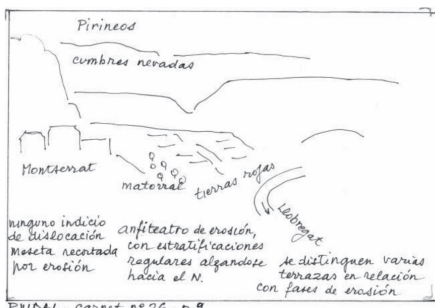 Pirineos
cumbres nevadas
Montserrat
matorral
tierras rojas
Llobregat
ninguno indicio
de dislocación
Meseta recortada
por erosión
anfiteatro de erosión,
con estratificaciones
regulares alzandose
hacia el N.
se distinguen varias
terrazas en relación
con fases de erosión
carnet nº 26, p. 9